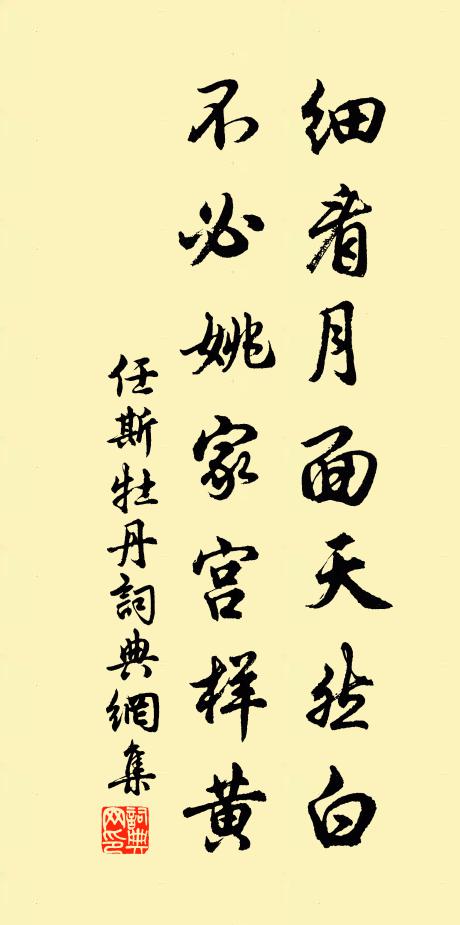 细看月面天然白
不必姚家宫样黄
任斯牡丹詞典網集
詞典网印